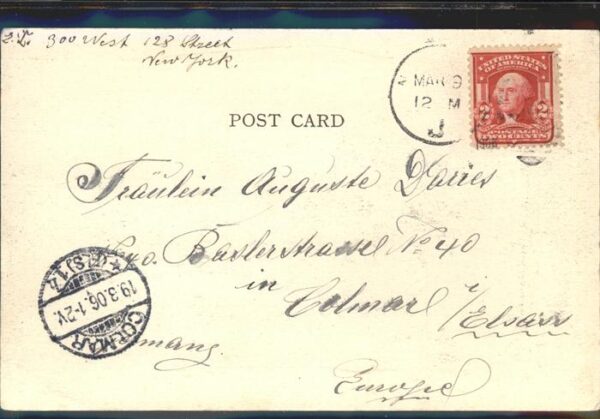 300 West 128 Street
New York.
MAR 9
12 M
J
UNITED STATES
OF AMERICA
2 2
POSTAGE
TWO CENTS
POST CARD
Fräulein Auguste
Baslerstrasse No 40
in
Colmar i/Elsass
Germany
Europe
COLMAR
19.3.06.1-2V.
(ELS)